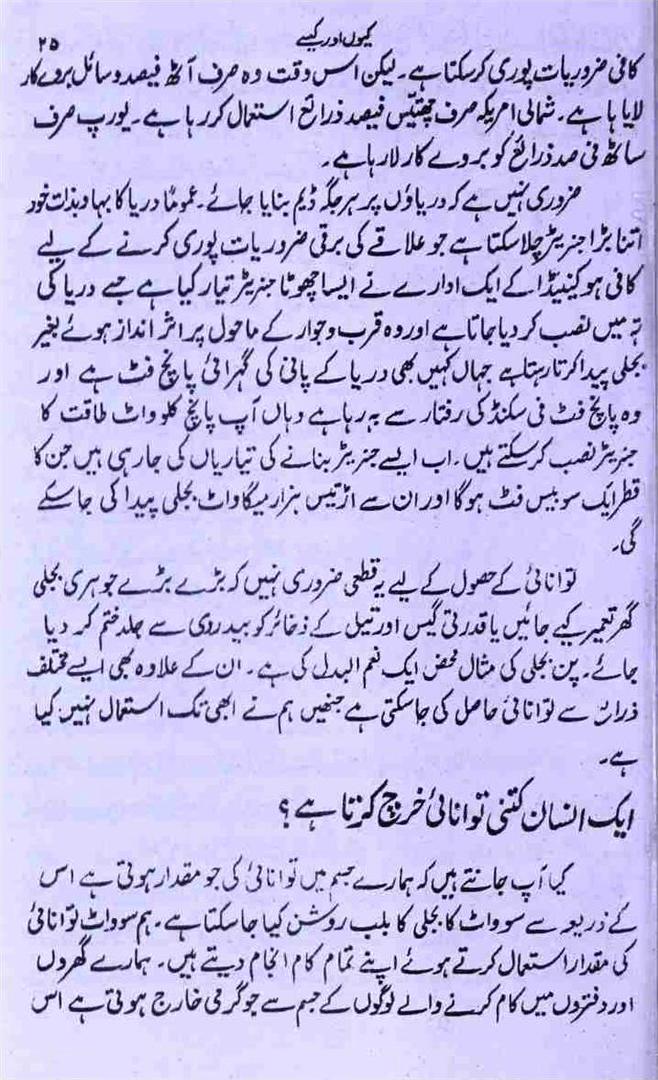 کیوں اور کیسے
۲۵
کافی ضروریات پوری کر سکتا ہے۔ لیکن اس وقت وہ صرف آٹھ فیصد وسائل بروے کار
لا پایا ہے۔ شمالی امریکہ صرف چھتیس فیصد ذرائع استعمال کر رہا ہے۔ یورپ صرف
ساٹھ فی صد ذرائع کو بروے کار لا رہا ہے۔
ضروری نہیں ہے کہ دریاؤں پر ہر جگہ ڈیم بنایا جائے۔ عموماً دریا کا بہاو بذات خود
اتنا بڑا جنریٹر چلا سکتا ہے جو علاقے کی برقی ضروریات پوری کرنے کے لیے
کافی ہو کینیڈا کے ایک ادارے نے ایسا چھوٹا جنریٹر تیار کیا ہے جسے دریا کی
تہ میں نصب کر دیا جاتا ہے اور وہ قرب و جوار کے ماحول پر اثر انداز ہوئے بغیر
بجلی پیدا کرتا رہتا ہے جہاں کہیں بھی دریا کے پانی کی گہرائی پانچ فٹ ہے اور
وہ پانچ فٹ فی سکنڈ کی رفتار سے بہ رہا ہے وہاں آپ پانچ کلو واٹ طاقت کا
جنریٹر نصب کر سکتے ہیں۔ اب ایسے جنریٹر بنانے کی تیاریاں کی جا رہی ہیں جن کا
قطر ایک سو بیس فٹ ہوگا اور ان سے اڑتیس ہزار میگا واٹ بجلی پیدا کی جا سکے
گی۔
توانائی کے حصول کے لیے یہ قطعی ضروری نہیں کہ بڑے بڑے جوہری بجلی
گھر تعمیر کیے جائیں یا قدرتی گیس اور تیل کے ذخائر کو بیدردی سے جلد ختم کر دیا
جائے۔ پن بجلی کی مثال محض ایک نعم البدل کی ہے۔ ان کے علاوہ بھی ایسے مختلف
ذرائع سے توانائی حاصل کی جا سکتی ہے جنھیں ہم نے ابھی تک استعمال نہیں کیا
ہے۔
ایک انسان کتنی توانائی خرچ کرتا ہے؟
کیا آپ جانتے ہیں کہ ہمارے جسم میں توانائی کی جو مقدار ہوتی ہے اس
کے ذریعہ سے سو واٹ کا بجلی کا بلب روشن کیا جا سکتا ہے۔ ہم سو واٹ توانائی
کی مقدار استعمال کرتے ہوئے اپنے تمام کام انجام دیتے ہیں۔ ہمارے گھروں
اور دفتروں میں کام کرنے والے لوگوں کے جسم سے جو گرمی خارج ہوتی ہے اس